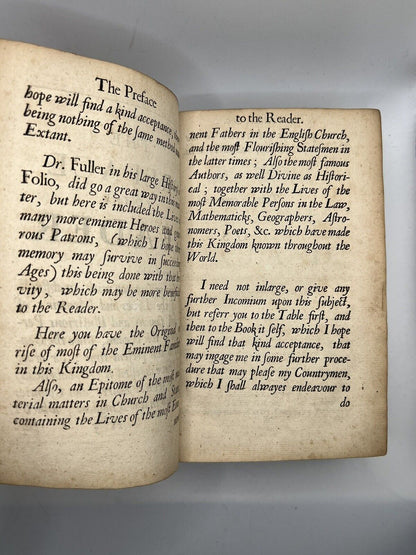 The Preface
hope will find a kind acceptance,
being nothing of the same method
Extant.
Dr. Fuller in his large
Folio, did go a great way in this
ter, but here is included the
many more eminent Heroes
rous Patrons, (which I hope
memory may survive in
Ages) this being done with that
vity, which may be more
to the Reader.
Here you have the Original
rise of most of the Eminent
in this Kingdom.
Also, an Epitome of the most
terial matters in Church and
containing the Lives of the most
to the Reader.
nent Fathers in the Engliſh Church,
and the moſt Flouriſhing Stateſmen in
the latter times; Alſo the moſt famous
Authors, as well Divine as Hiſtori-
cal; together with the Lives of the
moſt Memorable Perſons in the Law,
Mathematicks, Geographers, Aſtro-
nomers, Poets, &c. which have made
this Kingdom known throughout the
World.
I need not inlarge, or give any
further Incomium upon this ſubject,
but referr you to the Table firſt, and
then to the Book it ſelf, which I hope
will find that kind acceptance, that
may ingage me in ſome further proce-
dure that may pleaſe my Countrymen,
which I ſhall alwayes endeavour to
do